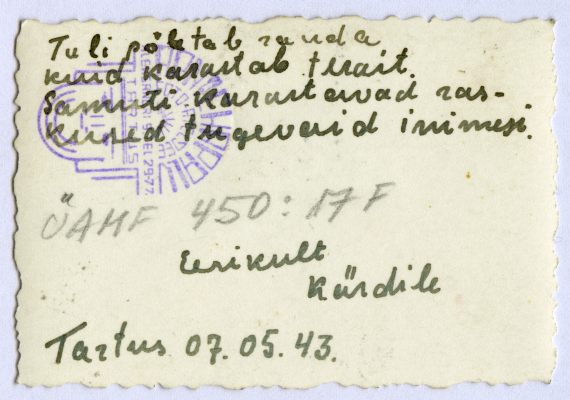 Tuli põletab rauda
kuid karastab terait.
Samuti karastavad ras-
kused tugevaid inimesi.
ÜAMF 450:17F
Eerikult
Kürdile
Tartus 07.05.43.
TARTUS
TEL 29-77.